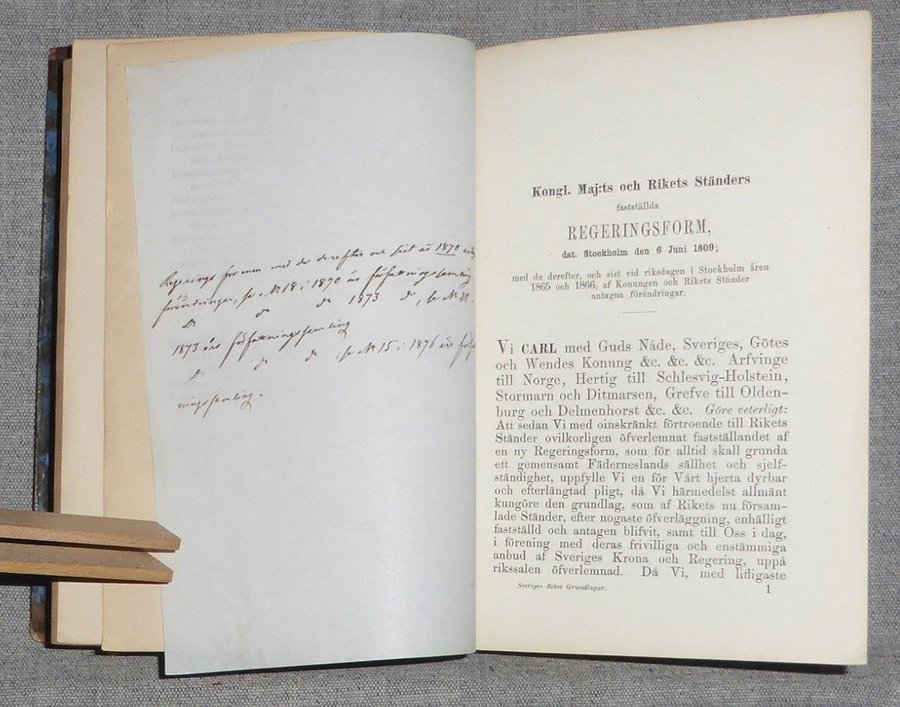 Regerings formen med de derefter och sist år 1870
förändringar, se N 18 i 1870 års författningssamling
do do do 1873 do, se N 11
1873 års författningssamling
do do do, se N 15 i 1876 års
ningssamling.
Kongl. Maj:ts och Rikets Ständers
fastställda
REGERINGSFORM,
dat. Stockholm den 6 Juni 1809;
med de derefter, och sist vid riksdagen i Stockholm åren
1865 och 1866, af Konungen och Rikets Ständer
antagna förändringar.
Vi CARL med Guds Nåde, Sveriges, Götes
och Wendes Konung &c. &c. &c. Arfvinge
till Norge, Hertig till Schlesvig-Holstein,
Stormarn och Ditmarsen, Grefve till Olden-
burg och Delmenhorst &c. &c. Göre veterligt:
Att sedan Vi med oinskränkt förtroende till Rikets
Ständer ovilkorligen öfverlemnat fastställandet af
en ny Regeringsform, som för alltid skall grunda
ett gemensamt Fäderneslands sällhet och sjelf-
ständighet, uppfylle Vi en för Vårt hjerta dyrbar
och efterlängtad pligt, då Vi härmedelst allmänt
kungöre den grundlag, som af Rikets nu försam-
lade Ständer, efter nogaste öfverläggning, enhälligt
fastställd och antagen blifvit, samt till Oss i dag,
i förening med deras frivilliga och enstämmiga
anbud af Sveriges Krona och Regering, uppå
rikssalen öfverlemnad. Då Vi, med lifligaste
Sveriges Rikes Grundlagar.
1